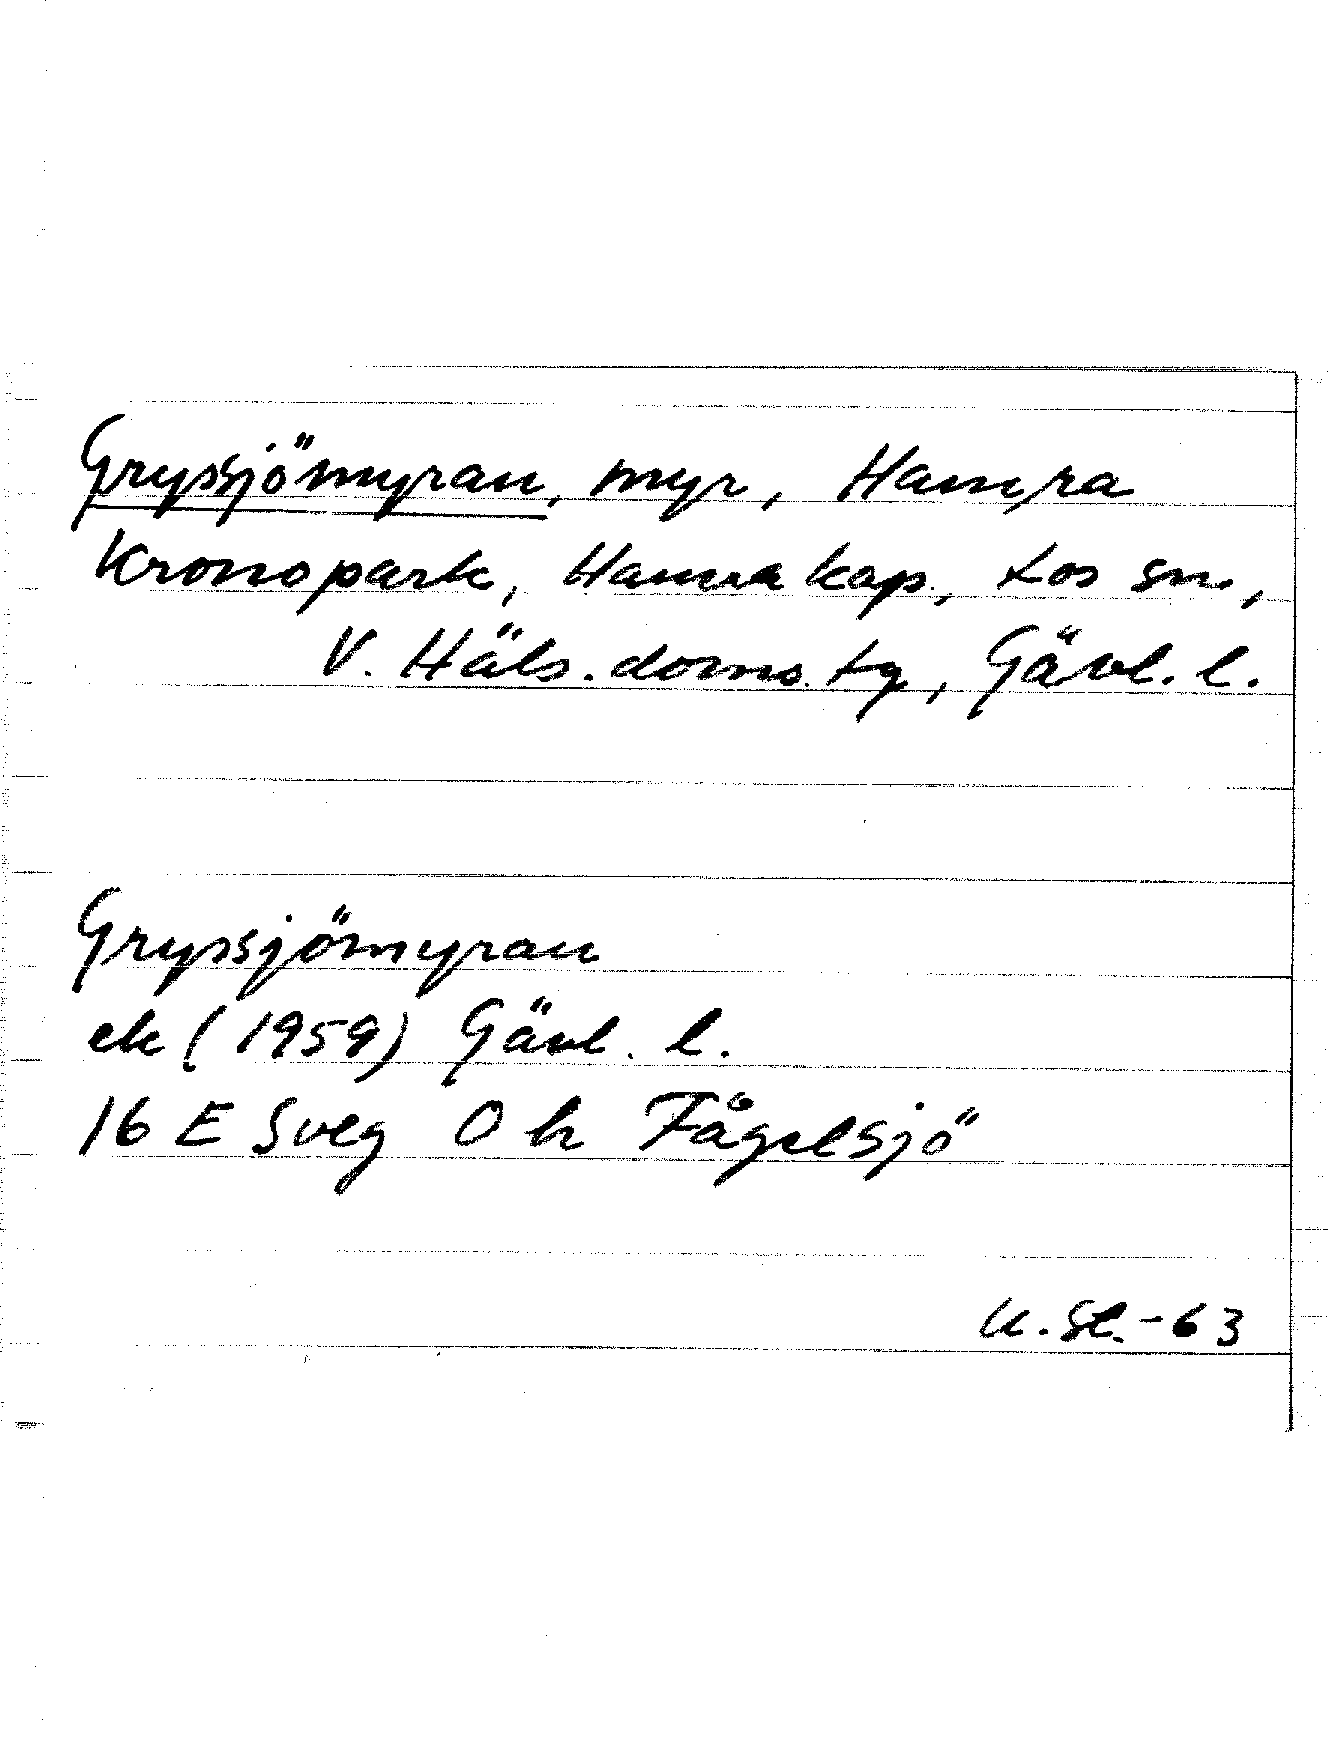 Gryssjömyran, myr, Hamra
Kronopark, Hamra kap., Los sn.,
V. Häls. doms. tg, Gävl. l.
Gryssjömyran
ek (1959) Gävl. l.
16 E Sveg O h Fågelsjö
U. St. -63